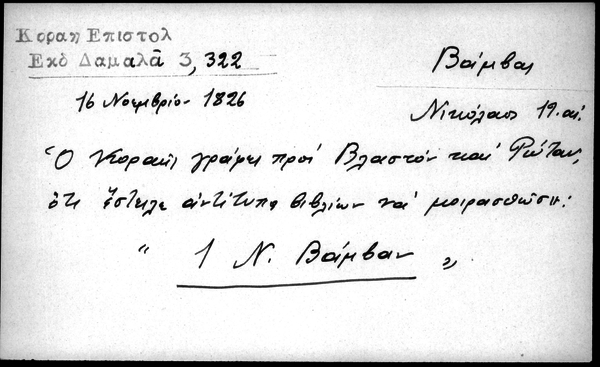 Κοραη Επιστολ
Εκδ Δαμαλᾶ 3, 322
Βάμβας
16 Νοεμβρίου 1826
Νικόλαος 19. αἰ.
Ὁ Κοραῆς γράφει πρὸς Βλαστὸν καὶ Ῥώταν,
ὅτι ἔστειλε ἀντίτυπα βιβλίων νὰ μοιρασθῶσι:
" 1 Ν. Βάμβαν "